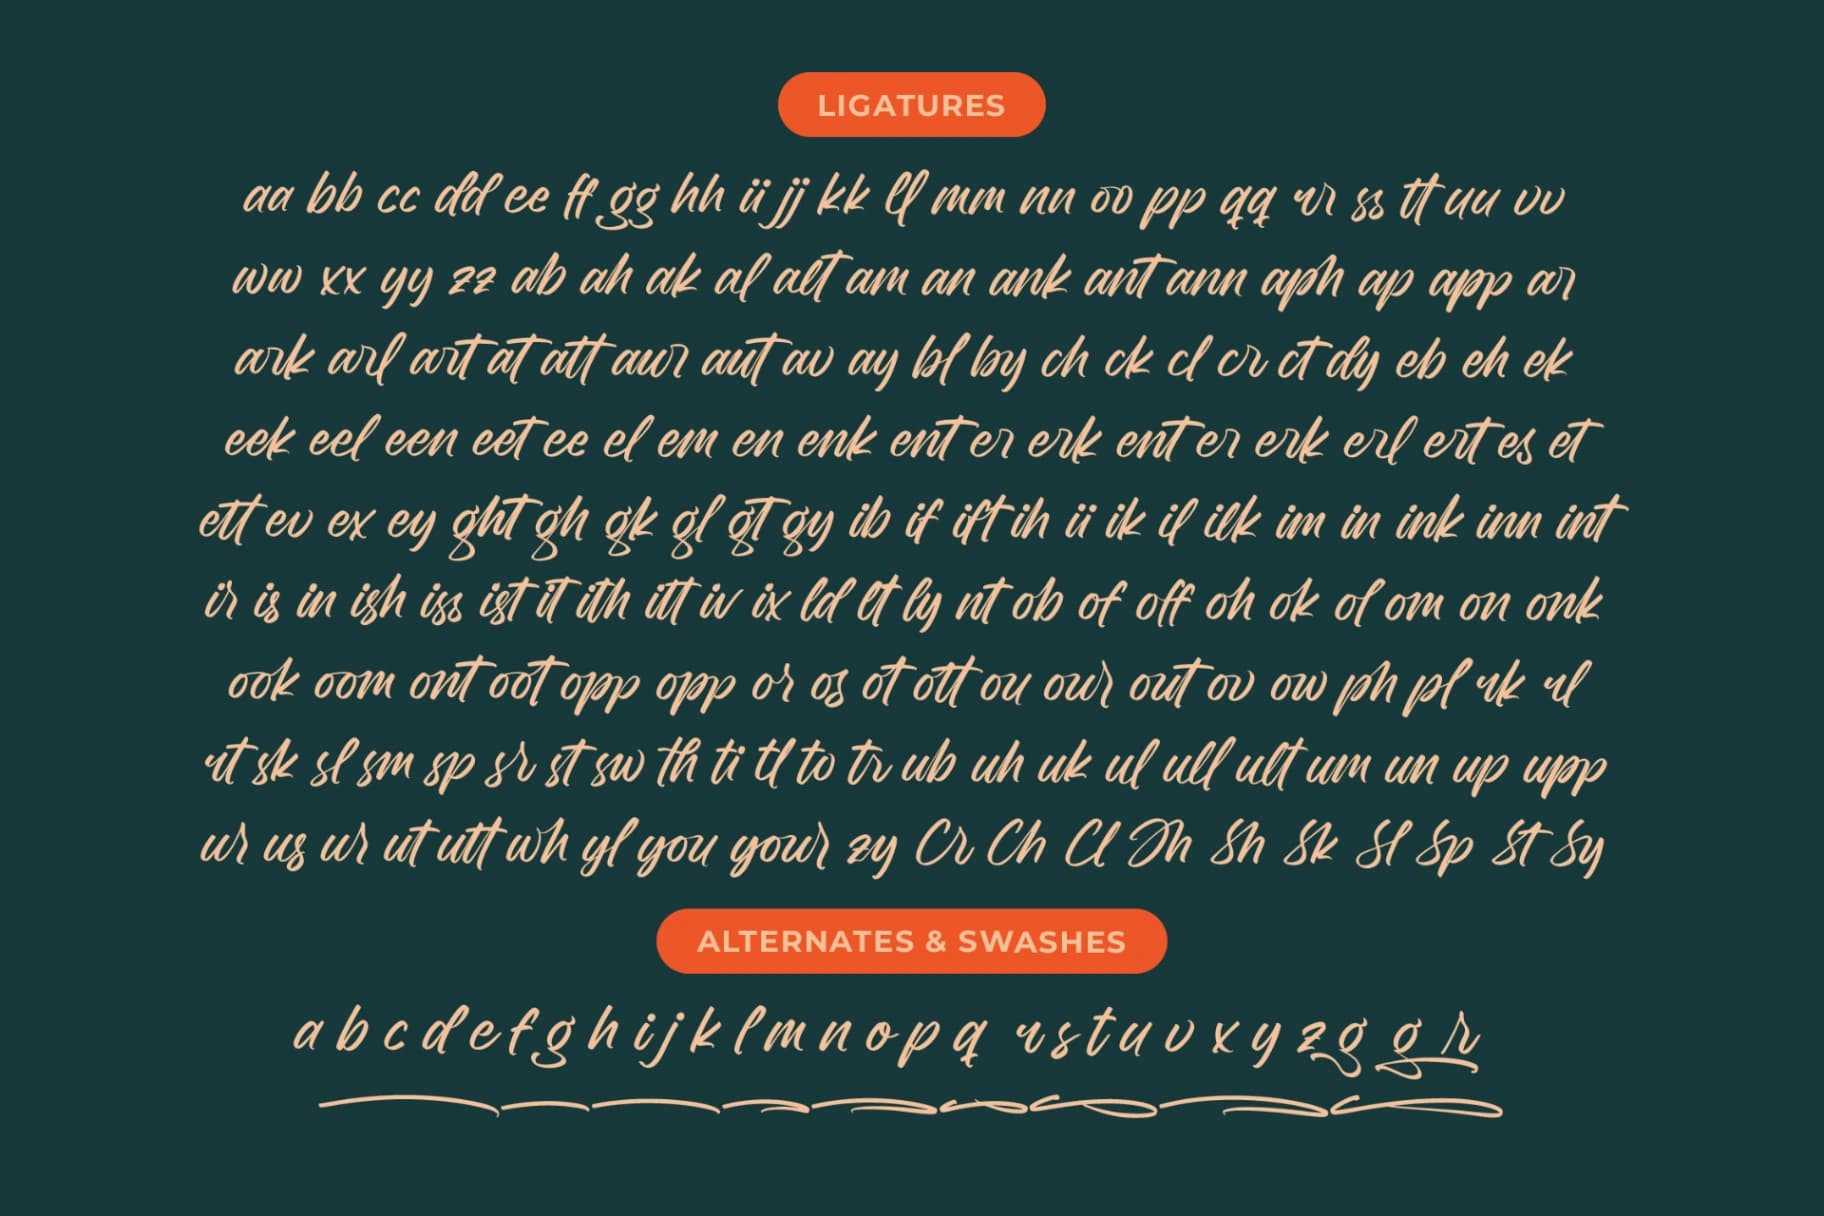 LIGATURES
aa bb cc dd ee ff gg hh ii jj kk ll mm nn oo pp qq rr ss tt uu vv
ww xx yy zz ab ah ak al alt am an ank ant ann aph ap app ar
ark arl art at att awr aut av ay bl by ch ck cl cr ct dy eb eh ek
eek eel een eet ee el em en enk ent er erk ent er erk erl ert es et
ett ev ex ey ght gh gk gl gt gy ib if ift ih ii ik il ilk im in ink inn int
ir is in ish iss ist it ith itt iv ix ld lt ly nt ob of off oh ok ol om on onk
ook oom ont oot opp opp or os ot ott ou our out ov ow ph pl rk rl
rt sk sl sm sp sr st sw th ti tl to tr ub uh uk ul ull ult um un up upp
ur us ur ut utt wh yl you your zy Cr Ch Cl Th Sh Sk Sl Sp St Sy
ALTERNATES & SWASHES
a b c d e f g h i j k l m n o p q r s t u v x y z g g r